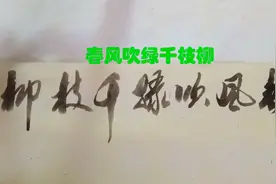 春风吹绿千枝柳
风吹绿千枝柳